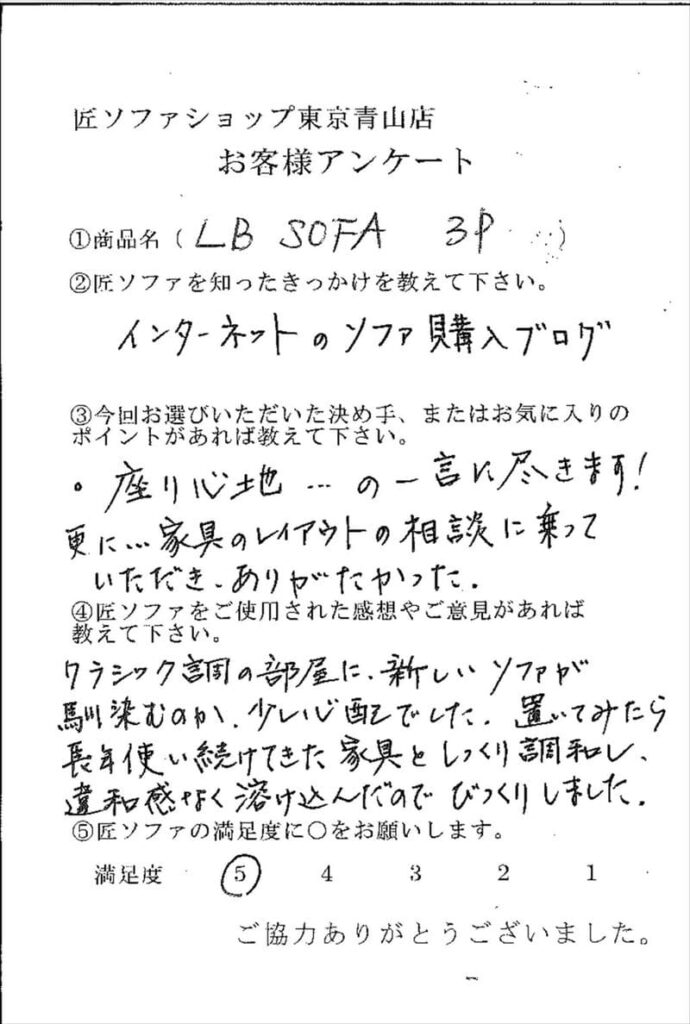 匠ソファショップ東京青山店
お客様アンケート
①商品名（ LB SOFA 3P ）
②匠ソファを知ったきっかけを教えて下さい。
インターネットのソファ購入ブログ
③今回お選びいただいた決め手、またはお気に入りの
ポイントがあれば教えて下さい。
・座り心地…の一言に尽きます!
更に…家具のレイアウトの相談に乗って
いただき、ありがたかった.
④匠ソファをご使用された感想やご意見があれば
教えて下さい。
クラシック調の部屋に、新しいソファが
馴染むのか、少し心配でした. 置いてみたら
長年使い続けてきた家具としっくり調和し、
違和感なく溶け込んだのでびっくりしました.
⑤匠ソファの満足度に○をお願いします。
満足度 5 4 3 2 1
ご協力ありがとうございました。